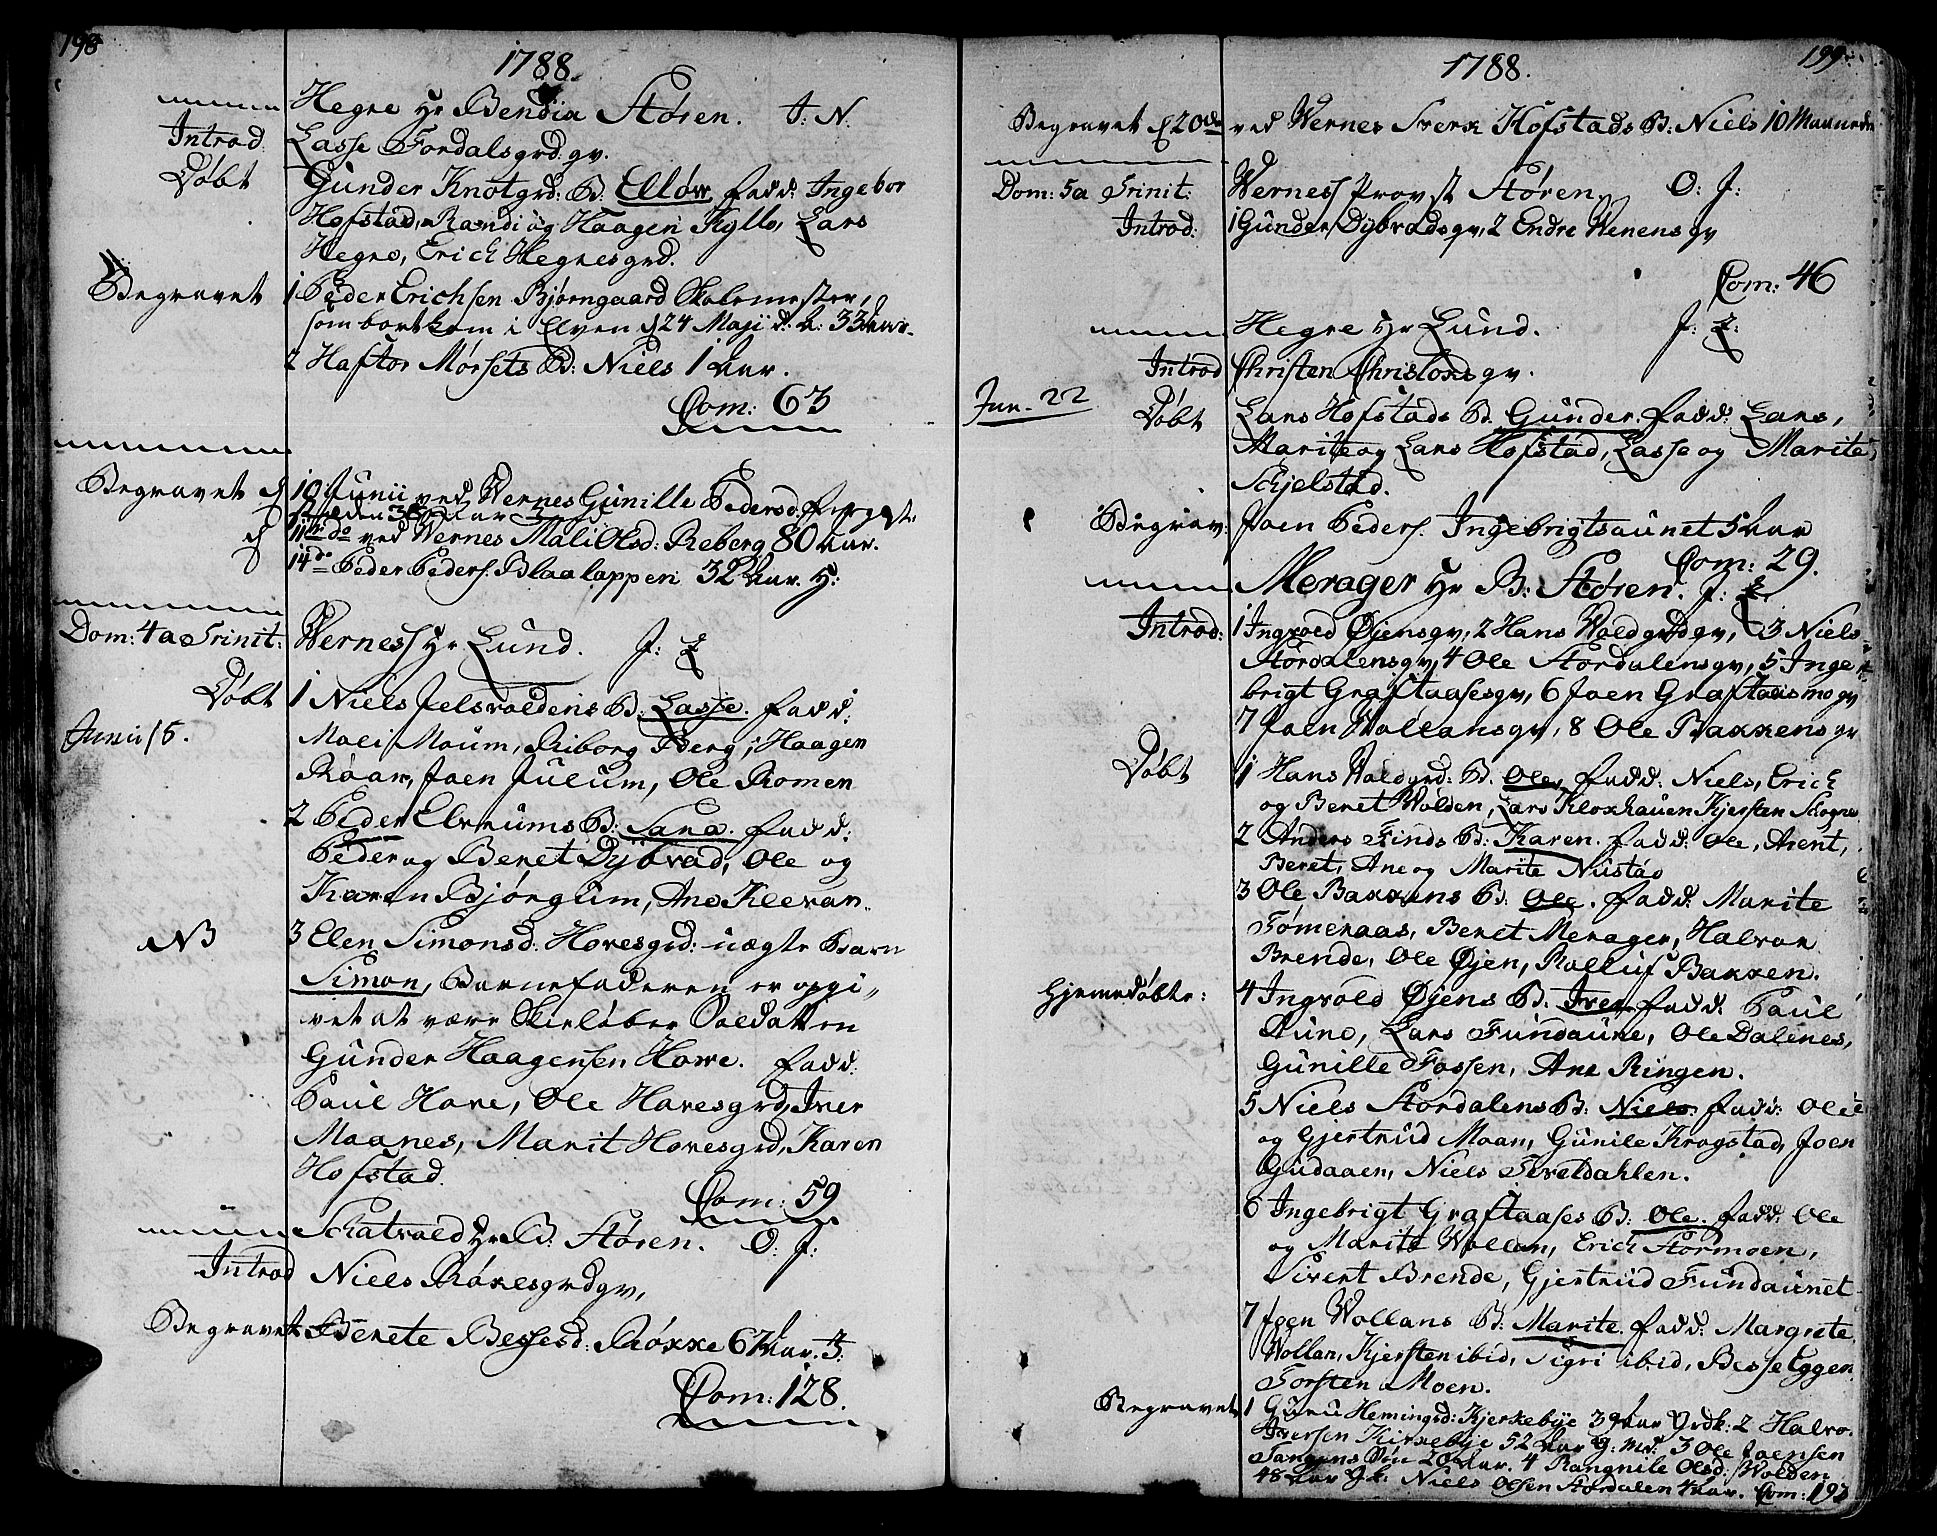 198
1788.
Hegre Hr Bendix Støren. J: N.
Introd: Lasse Fordalsgrd: gv.
Døbt Gunder Knotgrd: B: Ellóv, fadd: Ingebor
Hofstad, Randi og Haagen Kyllo, Lars
Hegre, Erich Hegresgrd.
Begravet 1 Peder Erichsen Bjørngaard Skolemester,
som bortkom i Elven d 24 Maji d: A: 33 Aar.
2 Haftor Mørsets B: Niels 1 Aar.
Com: 63
Begravet d 10 Junii ved Wernes Gunille Pedersd:
d 11te do ved Wernes Mali Olsd: Reberg 80 Aar.
14 do Peder Peders. Blaalappen 32 Aar. H:
Dom: 4a Trinit: Werness Hr Lund. J: L
Døbt 1 Niels Jelsvoldens B: Lasse. fadd:
Junii 15.
Mali Moum, Riborg Berg, Haagen
Roar, Joen Julum, Ole Romen
2 Peder Elvrums B: Sara. fadd:
Peder og Beret Dybvad, Ole og
Karen Bjørgum, Ane Klevan.
NB 3 Elen Simonsd: Hovesgrd: uægte Barn
Simon, Barnefaderen er opgi„
vet at være Skieløber Soldatten
Gunder Haagensen Howe. fadd:
Paul Hove, Ole Hovesgrd, Iver
Maanes, Marit Hovesgrd, Karen
Hofstad.
Com: 59
Schatvold Hr B: Støren. O: J:
Introd Niels Røkesgrdgv,
Begravet Berete Bessesd: Røkke 67 Aar. J:
Com: 128.
1788.
199
Begravet d 20de ved Wernes Sverk Hofstads B: Niels 10 Maaneder
Dom: 5a Trinit: Werness Provst Støren, O: J:
Introd: 1 Gunder Dybvadsgv, 2 Endre Wenensgv
Com: 46
Hegre Hr Lund. J: L:
Introd Christen Christoxsgv.
Jun. 22
Døbt Lars Hofstads B: Gunder. fadd: Lars,
Marite og Lars Hofstad, Lasse og Marite
Schjelstad.
Begrav: Joen Peders. Ingebrigtsaunet 5 Aar
Com: 29.
Merager Hr B: Støren. J: L.
Introd: 1 Ingvold Øjensgv, 2 Hans Woldgrdgv, 3 Niels
Stordalensgv, 4 Ole Stordalensgv, 5 Inge
brigt Graftaasesgv, 6 Joen Graftaasmogv
7 Joen Wollansgv, 8 Ole Bakkensgv
Døbt 1 Hans Woldgrd: B: Ole, fadd: Niels, Erich
og Beret Wolden, Lars Kloxhauen Kjersten
2 Anders Finds B: Karen. fadd: Ole, Arent,
Beret, Ane og Marite Nustad
3 Ole Bakkens B: Ole. fadd: Marite
Tømeraas, Beret Merager, Halvor
Brende, Ole Øjen, Rolluf Bakken.
Hjemedøbte: 4 Ingvold Øjens B: Iver fadd: Paul
Aune, Lars Fundaune, Ole Dalenes,
Gunille Fossen, Ane Ringen.
5 Niels Stordalens B: Niels. fadd: Ole
og Gjertrud Moan, Gunile Krogstad, Joen
Gudaaen, Niels Teveldahlen.
6 Ingebrigt Graftaases B: Ole. fadd: Ole
og Marite Wollan, Erich Stormoen,
Sivert Brende, Gjertrud Fundaunet
7 Joen Wollans B: Marite. fadd: Margrete
Wollan, Kjersten ibid, Sigri ibid, Besse Eggen
Torsten Moen.
Begravet 1 Guru Hemingsd: Kjerkebye 39 Aar 2 Halvo.
Iversen Kirkebye 52 Aar 3 Ole Joensen
Tangens Søn 20 Aar. 4 Rangnile Olsd: Wolden
48 Aar Niels Olsen Stordalen 4 Aar. Com: 193